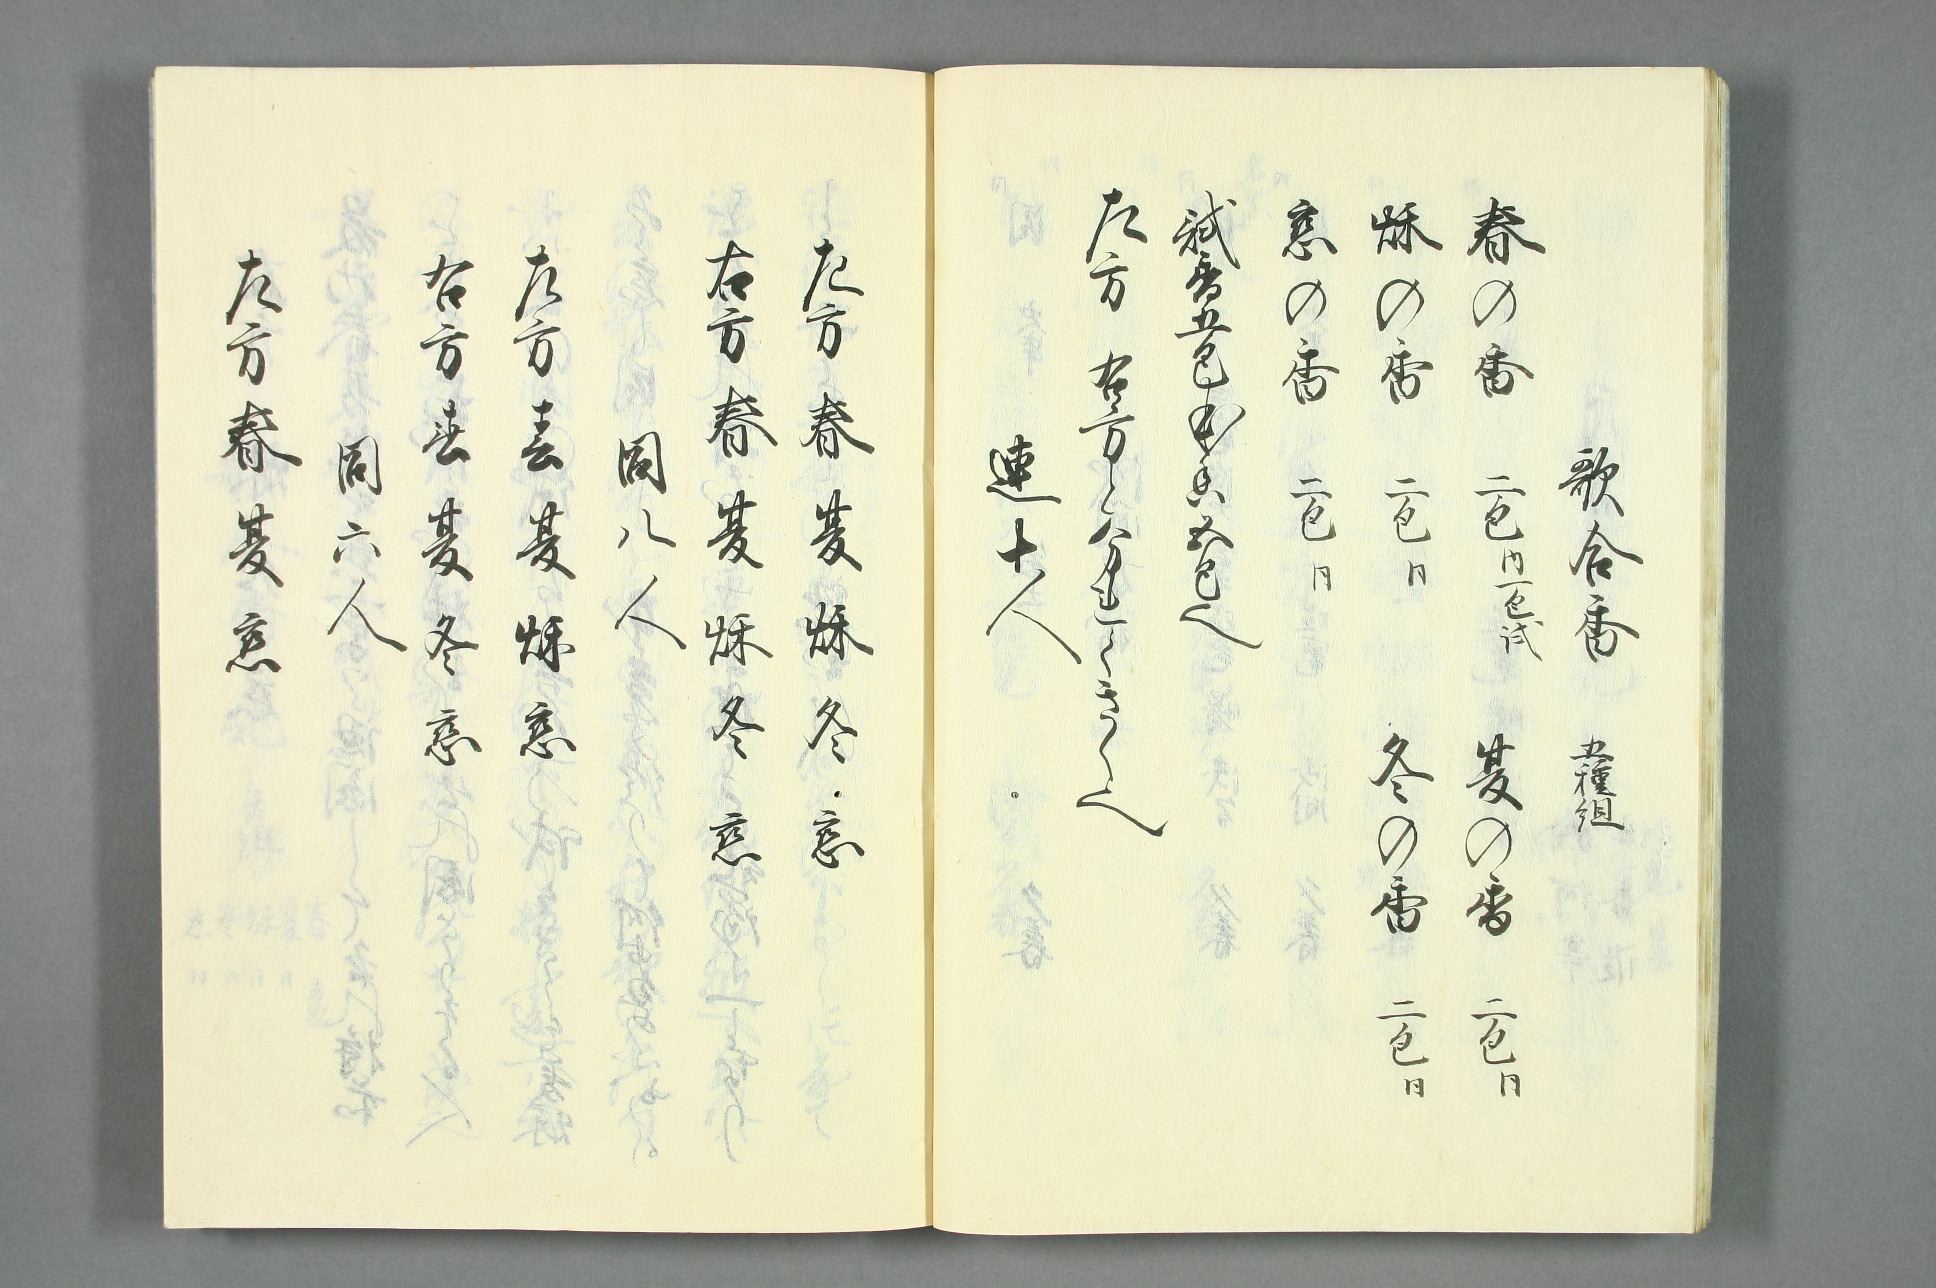 歌合香　五種組
春の香　二包内一包試　夏の香　二包同
秌の香　二包同　冬の香　二包同
恋の香　二包同
試香五包本香五包
左方　右方と分れてきくへし
連十人
左方春夏秌冬恋
右方春夏秌冬恋
同八人
左方春夏秌恋
右方春夏冬恋
同六人
左方春夏恋